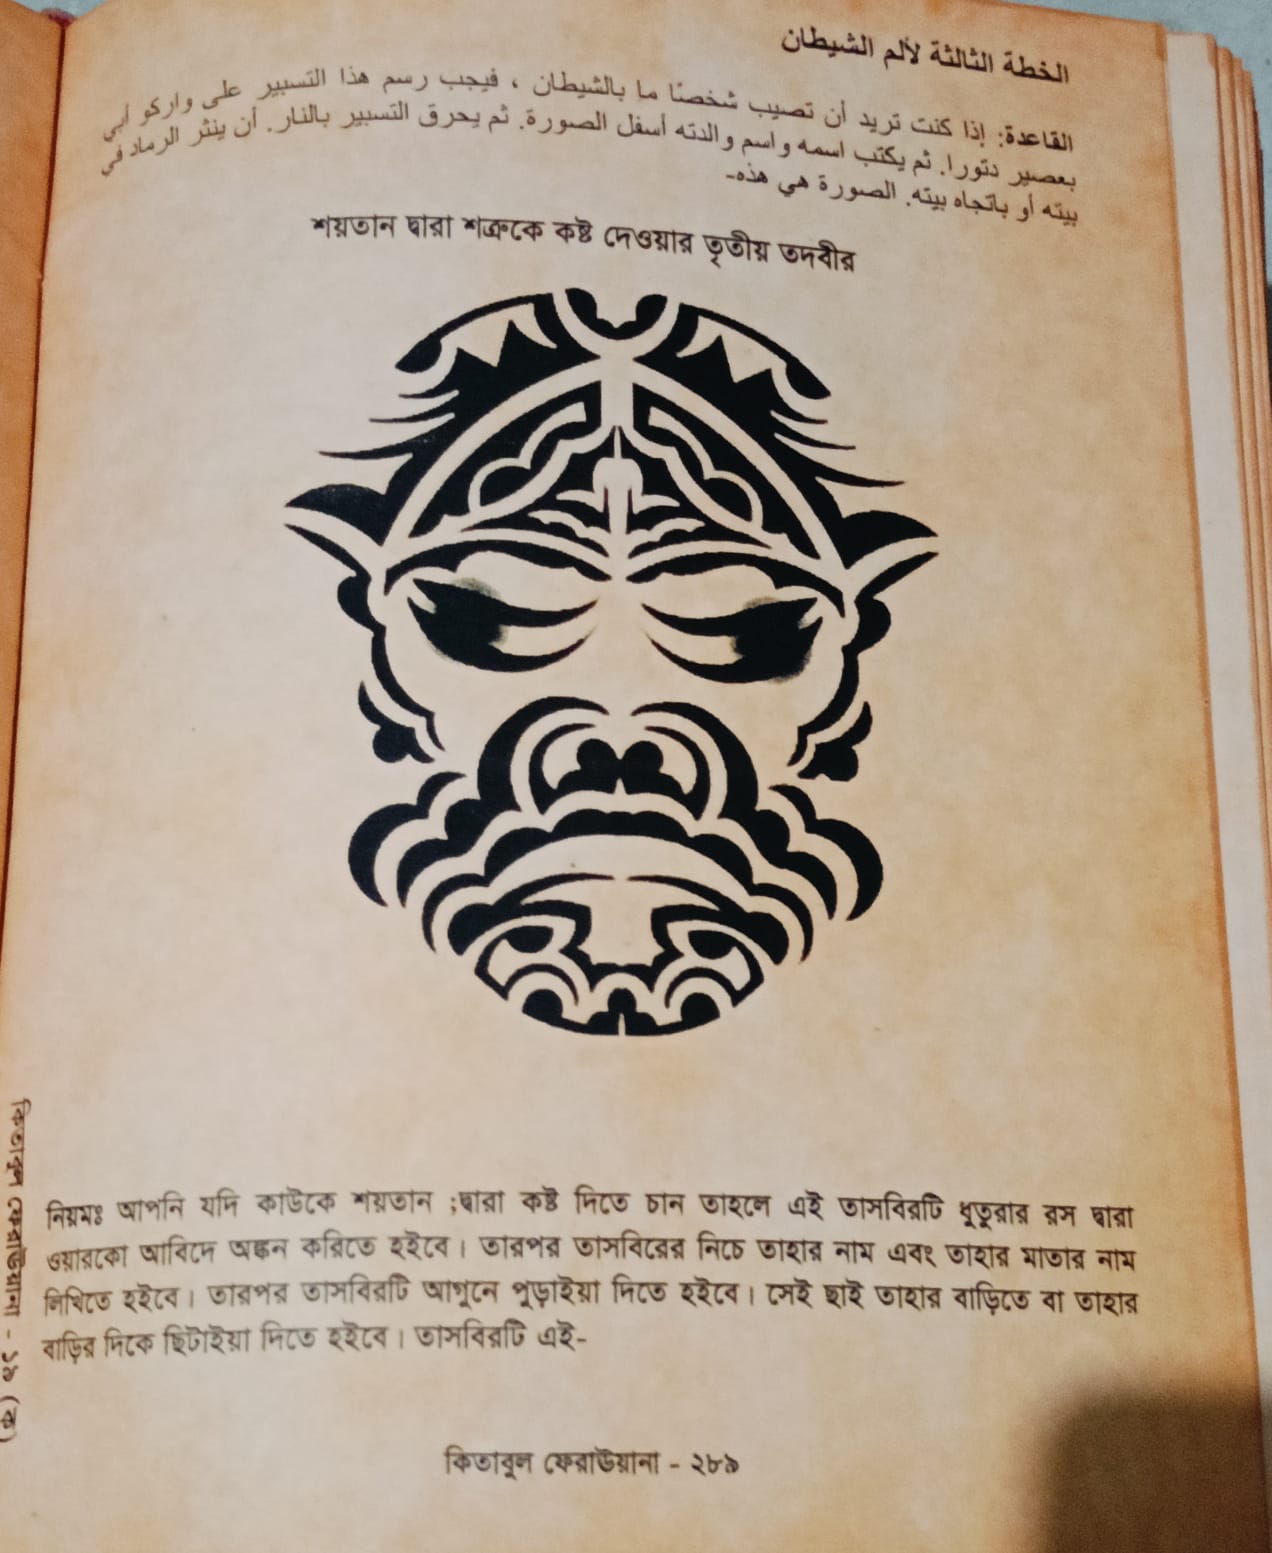 الخطة الثالثة لألم الشيطان
القاعدة: إذا كنت تريد أن تصيب شخصنًا ما بالشيطان ، فيجب رسم هذا التسبير على واركو أبي
بعصير دتورا. ثم يكتب اسمه واسم والدته أسفل الصورة. ثم يحرق التسبير بالنار. أن ينثر الرماد في
بيته أو باتجاه بيته. الصورة هي هذه-
শয়তান দ্বারা শত্রুকে কষ্ট দেওয়ার তৃতীয় তদবীর
নিয়মঃ আপনি যদি কাউকে শয়তান ;দ্বারা কষ্ট দিতে চান তাহলে এই তাসবিরটি ধুতুরার রস দ্বারা
ওয়ারকো আবিদে অঙ্কন করিতে হইবে। তারপর তাসবিরের নিচে তাহার নাম এবং তাহার মাতার নাম
লিখিতে হইবে। তারপর তাসবিরটি আগুনে পুড়াইয়া দিতে হইবে। সেই ছাই তাহার বাড়িতে বা তাহার
বাড়ির দিকে ছিটাইয়া দিতে হইবে। তাসবিরটি এই-
কিতাবুল ফেরাউয়ানা - ১৯ (ক)
কিতাবুল ফেরাউয়ানা - ২৮৯